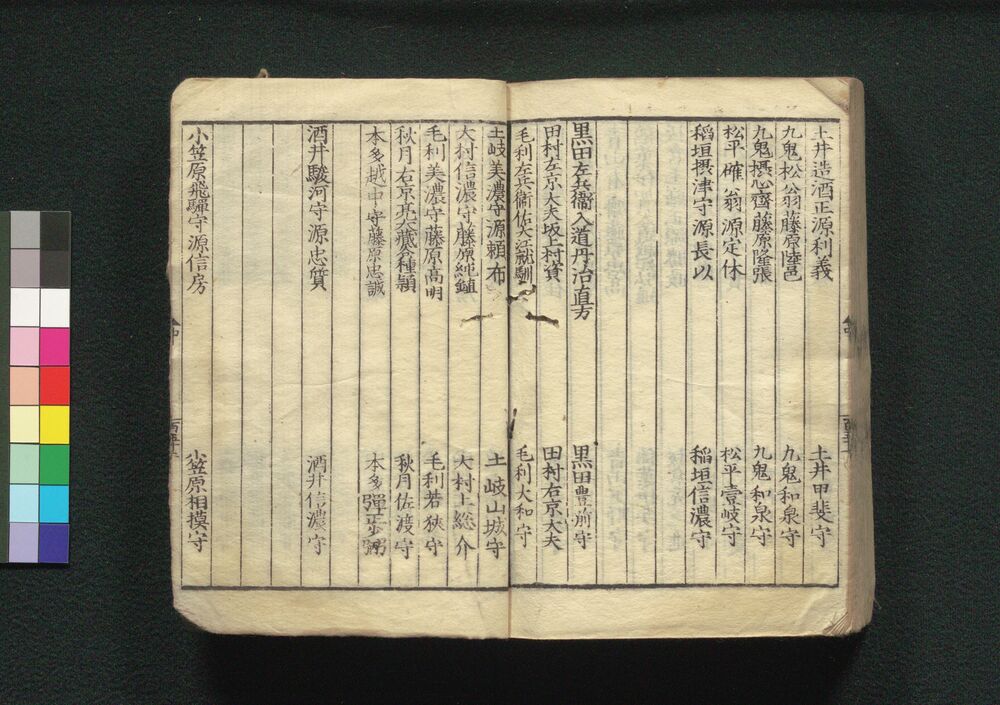 土井造酒正源利義　土井甲斐守
九鬼松翁藤原隆邑　九鬼和泉守
九鬼摂心齋藤原隆張　九鬼和泉守
松平確翁源定休　松平壹岐守
稲垣摂津守源長以　稲垣信濃守
黒田左兵衞入道丹治直方　黒田豊前守
田村左京大夫坂上村資　田村右京大夫
毛利左兵衞佐大江就馴　毛利大和守
土岐美濃守源頼布　土岐山城守
大村信濃守藤原純鎮　大村上総介
毛利美濃守藤原高明　毛利若狭守
秋月右京亮大蔵種穎　秋月佐渡守
本多越中守藤原忠誠　本多弾正少弼
酒井駿河守源忠質　酒井信濃守
小笠原飛騨守源信房　小笠原相摸守